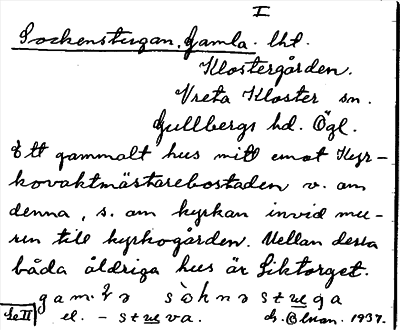 I
Sockenstugan, Gamla. lht.
Klostergården.
Vreta Kloster sn.
Gullbergs hd. Ögl.
Ett gammalt hus mitt emot Kyr-
kovaktmästarebostaden v. om
denna, s. om kyrkan invid mu-
ren till kyrkogården. Mellan dessa
båda åldriga hus är Liktorget.
sòknəstuga
Se II el. - stuva. 1937.